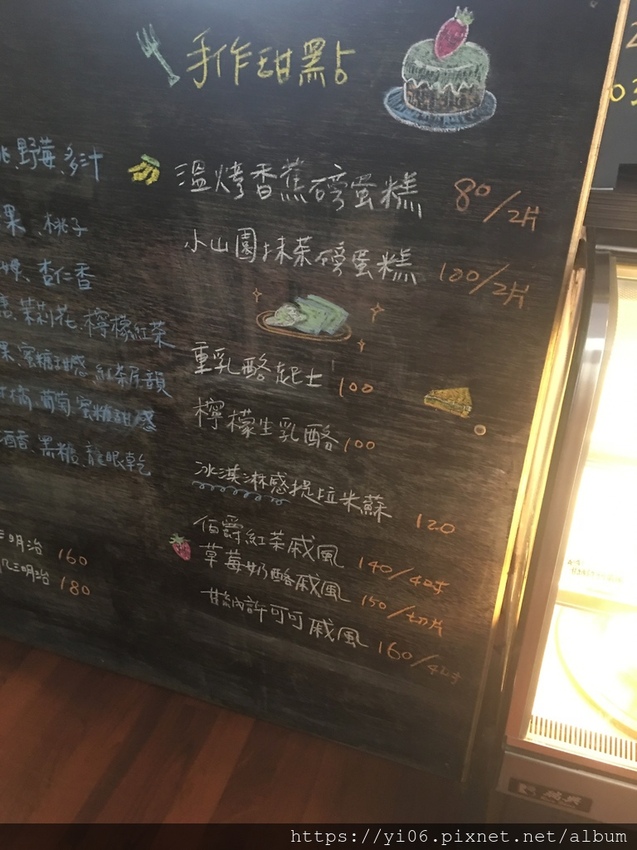 手作甜點
溫烤香蕉磅蛋糕 80/2片
小山園抹茶磅蛋糕 100/2片
重乳酪起士 100
檸檬生乳酪 100
冰淇淋感提拉米蘇 120
伯爵紅茶戚風 140/4吋
草莓奶酪戚風 150/切片
甘納許可可戚風 160/4吋
野莓、多汁
果、桃子
杏仁香
茉莉花、檸檬紅茶
果、蜜糖甜感、紅茶尾韻
橘、葡萄、蜜糖甜感
酒香、黑糖、龍眼乾
三明治 160
三明治 180
https://yi06.pixnet.net/album